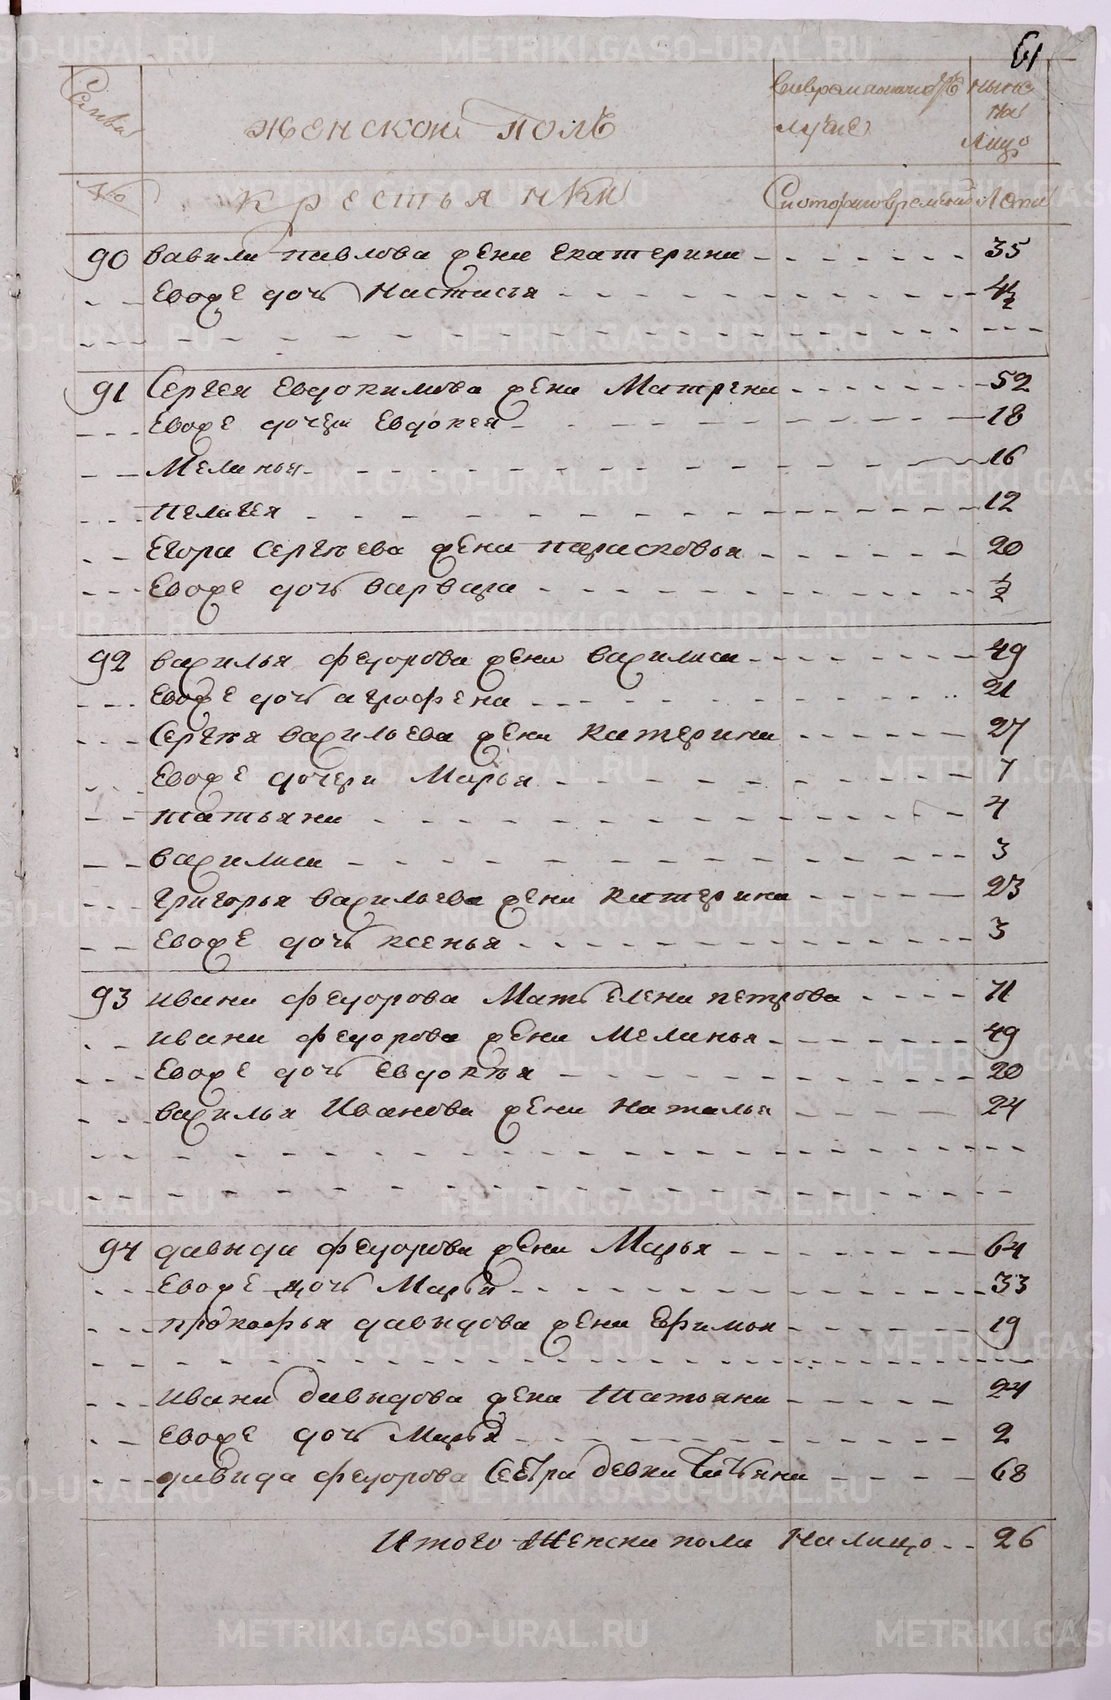 61
Семьи
Женской полъ
Во временной отлучке
Ныне на лицо
№
Крестьянки
С которого времени
Лета
90 Вавила Павлова жена Екатерина 35
Евоже дочь Настасья 4½
91 Сергея Евдокимова жена Матрена 52
Евоже дочери Евдокея 18
Меланья 16
Пелагея 12
Егора Сергеева жена Парасковья 20
Евоже дочь Варвара ½
92 Василья Федорова жена Василиса 49
Евоже дочь Агрофена 21
Сергея Васильева жена Катерина 27
Евоже дочери Марья 7
Татьяна 4
Василиса 3
Григорья Васильева жена Катерина 23
Евоже дочь Ксенья 3
93 Ивана Федорова мать Елена Петрова 71
Ивана Федорова жена Меланья 49
Евоже дочь Евдокѣя 20
Василья Иванова жена Наталья 24
94 Давыда Федорова жена Марья 64
Евоже дочь Марья 33
Прокофья Давыдова жена Ефимья 19
Ивана Давыдова жена Татьяна 24
Евоже дочь Марья 2
Давыда Федорова сестра девка Татьяна 68
Итого женска пола на лицо 26
METRIKI.GASO-URAL.RU